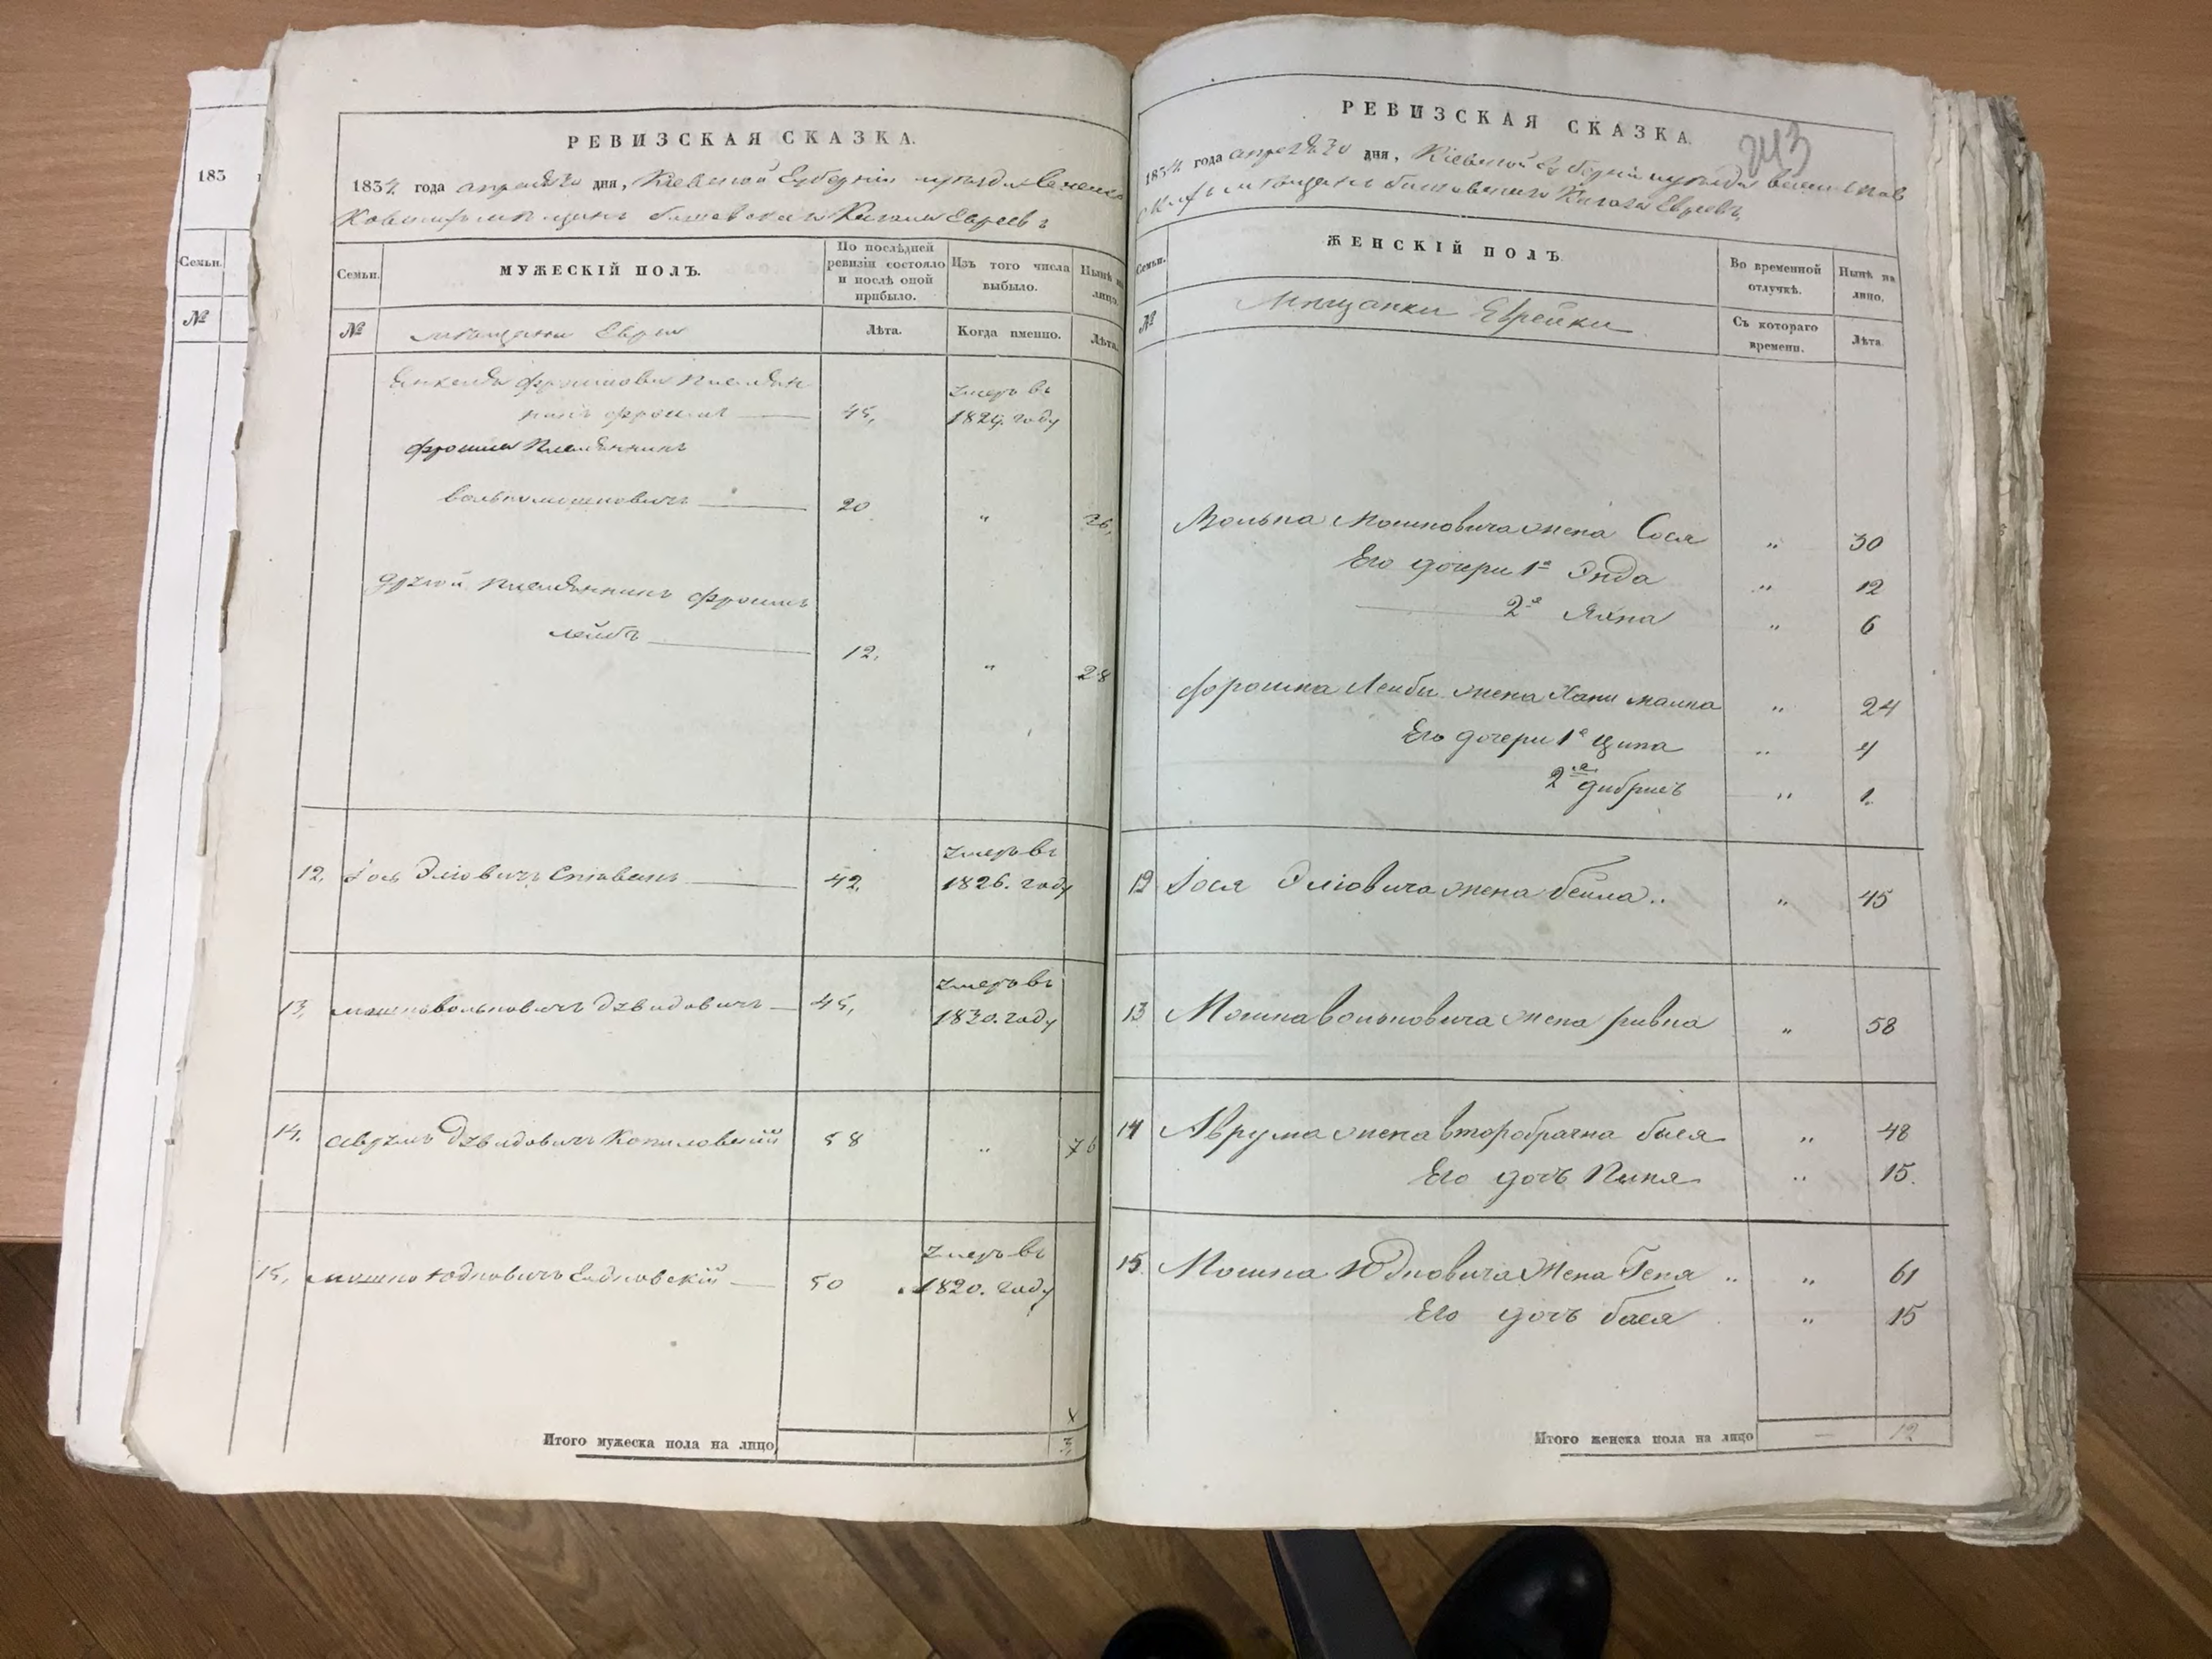 183
Семьи.
№
РЕВИЗСКАЯ СКАЗКА.
1834 года апреля 30 дня, Кіевской Губерніи
Кагала Евреевъ
Семьи.
МУЖЕСКІЙ ПОЛЪ.
По послѣдней ревизіи состояло и послѣ оной прибыло.
Изъ того числа выбыло.
Нынѣ на лицо.
№
мѣщани Евреи
Лѣта.
Когда именно.
Лѣта.
Фроимъ 45, умеръ въ 1829. году
Фроима племянникъ
Волько Мошковичъ 20 " 36,
другой племянникъ Фроимъ
Лейбъ 12, " 28
12, Іось Эліовичъ Співакъ 42, умеръ въ 1826. году
13, Мошко Вольковичъ Давидовичъ 45, умеръ въ 1830. году
14. Аврумъ Давидовичъ Копиловскій 58 " 76
15, Мошко Юдковичъ 50 умеръ въ 1820. году
Итого мужеска пола на лицо 3,
РЕВИЗСКАЯ СКАЗКА.
243
1834 года апреля 30 дня, Кіевской Губерніи
Кагала Евреевъ,
Семьи.
ЖЕНСКІЙ ПОЛЪ.
Во временной отлучкѣ.
Нынѣ на лицо.
№
Мѣщанки Еврейки
Съ котораго времени.
Лѣта.
Волька Мошковича жена Сося " 30
Его дочери 1я Энда " 12
2я Яхна " 6
Фроима Лейби жена Хаии Малка " 24
Его дочери 1я Ципа " 4
2я " 1.
12 Іося Эліовича жена Бейла " 45
13 Мошка Вольковича жена Ривка " 58
14 Аврума жена второбрачна Бася " 48
Его дочь " 15.
15 Мошка Юдковича жена Геня " 61
Его дочь Бася " 15
Итого женска пола на лицо — 12